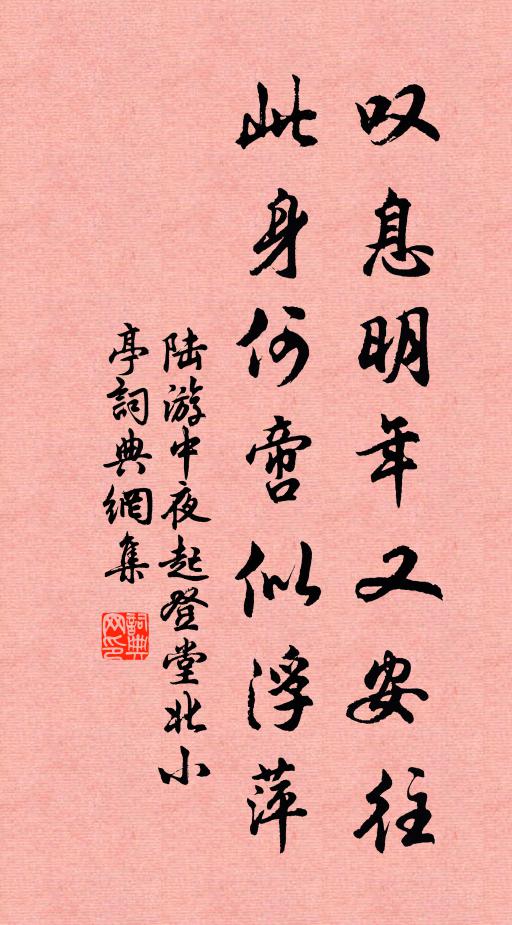 叹息明年又安往
此身何啻似浮萍
陆游中夜起登堂北小
亭詞典網集
詞典
网印